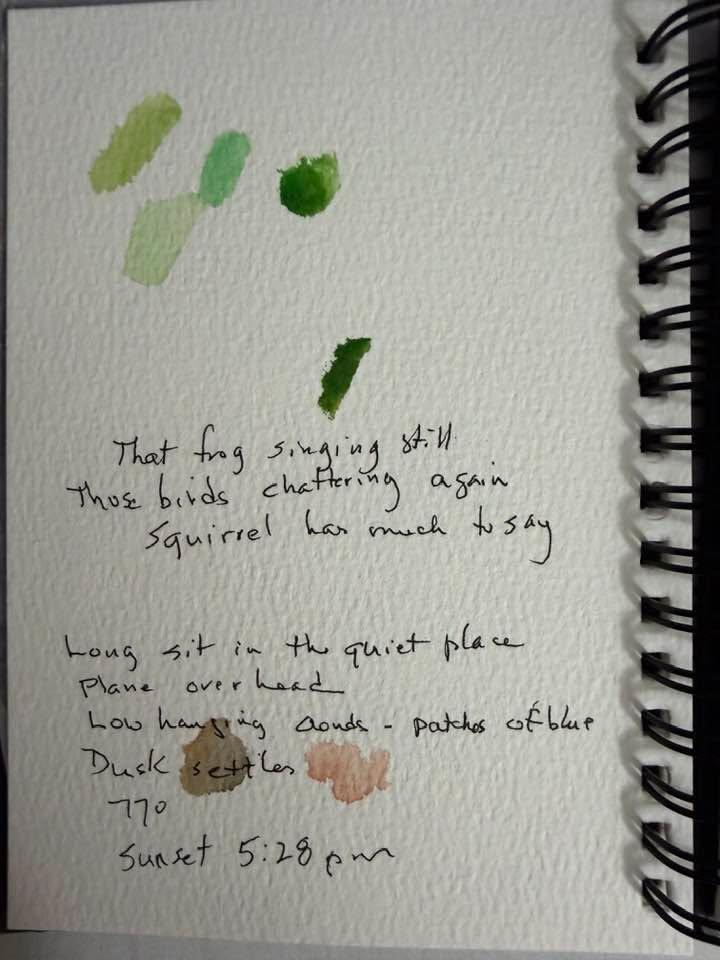 That frog singing still
Those birds chattering again
Squirrel has much to say
Long sit in the quiet place
Plane overhead
Low hanging clouds - patches of blue
Dusk settles
77°
Sunset 5:28 pm